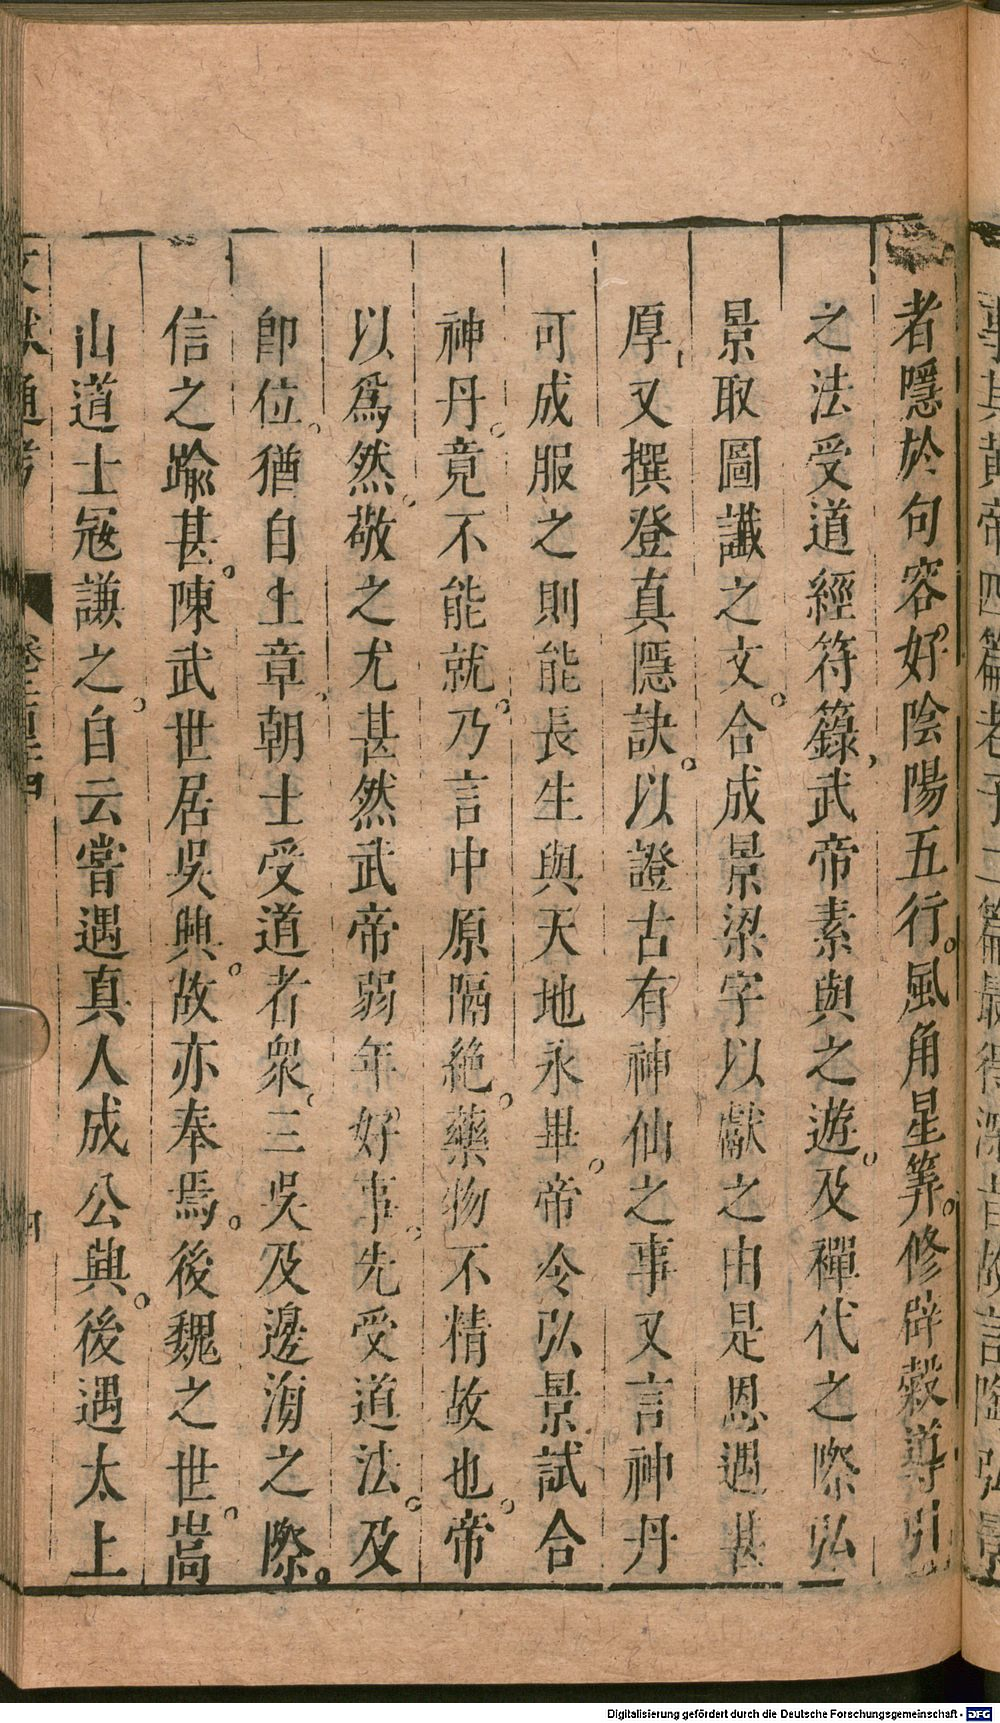 者隱於句容。好陰陽五行。風角星筭。修辟穀導引
之法受道經符籙，武帝素與之遊。及禪代之際弘
景取圖讖之文。合成景梁字以獻之由是恩遇甚
厚又撰登真隱訣。以證古有神仙之事又言神丹
可成服之則能長生與天地永畢。帝令弘景試合
神丹。竟不能就。乃言中原隔絶。藥物不精故也。帝
以爲然。敬之尤甚然武帝弱年好事。先受道法。及
卽位。猶自上章，朝士受道者衆。三吳及邊海之際。
信之踰甚。陳武世居吳興。故亦奉焉。後魏之世。嵩
山道士冦謙之。自云嘗遇真人成公興。後遇太上
文獻通考
四
Digitalisierung gefördert durch die Deutsche Forschungsgemeinschaft - DFG